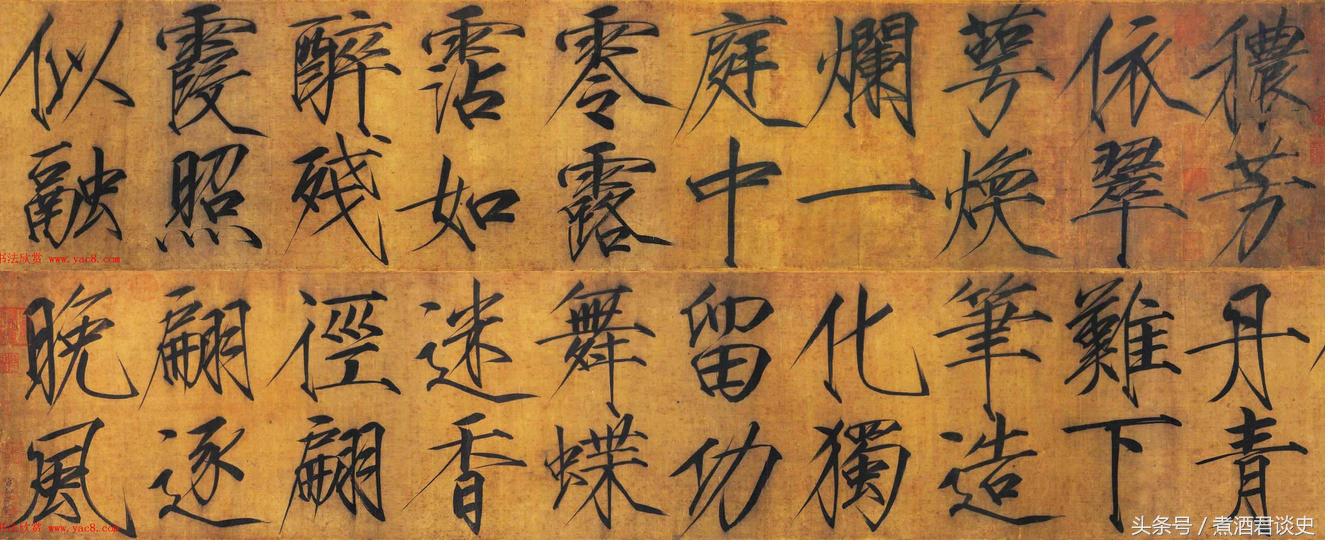 穠芳
依翠
萼煥
爛一
庭中
零露
霑如
醉残
霞照
似融
书法欣赏 www.yac8.com
丹青
難下
筆造
化獨
留功
舞蝶
迷香
徑翩
翩逐
晚風
书法欣赏 www.yac8.com
头条号 / 煮酒君谈史